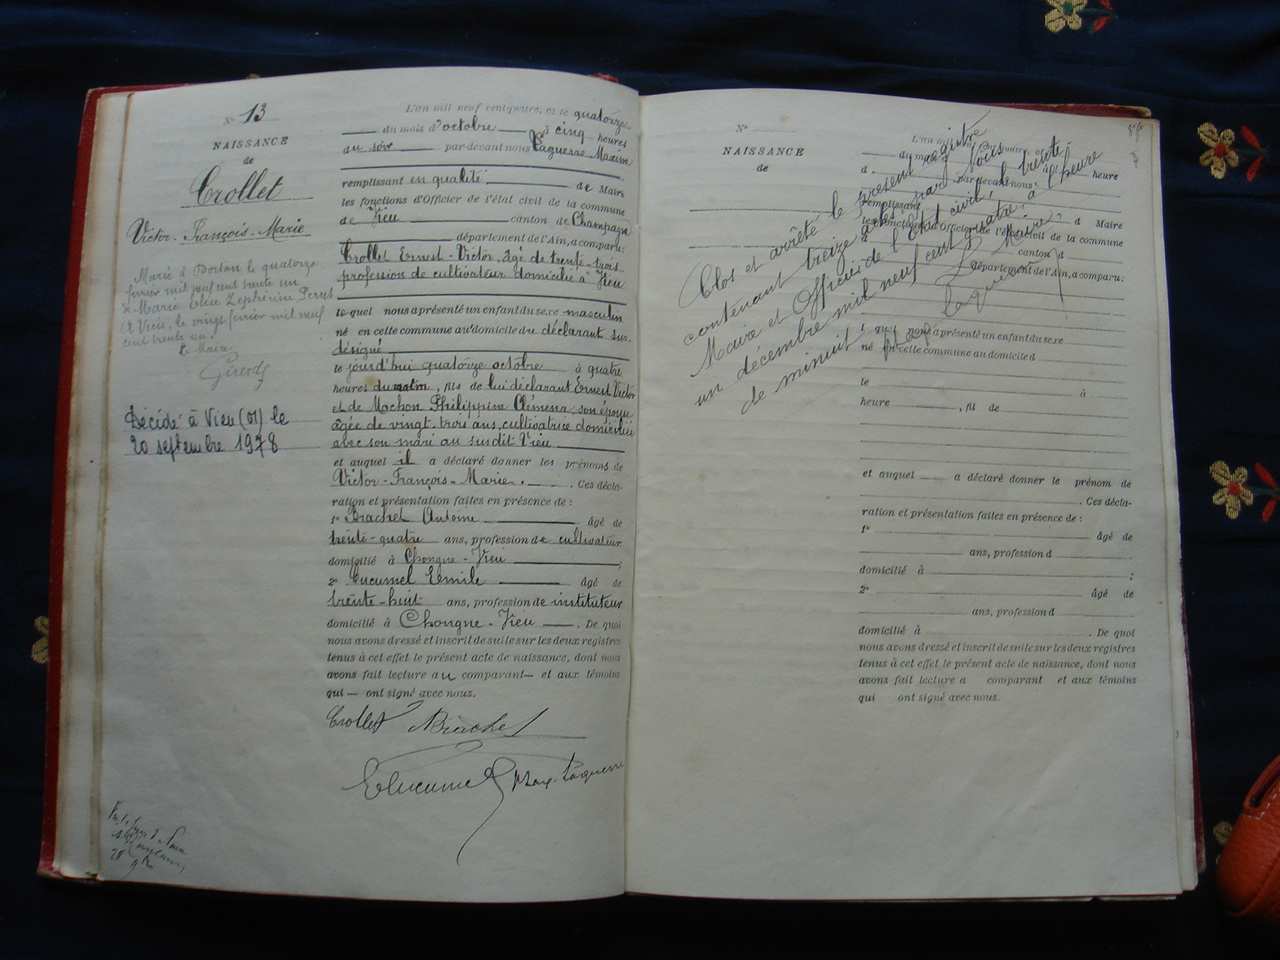 N° 13
NAISSANCE
de
Crollet
Victor-François-Marie
Marié à le quatorze
février mil neuf cent trente un
à Marie Zéphirine
A Vieu, le vingt février mil neuf
cent trente un.
Le Maire
Décédé à Vieu (01) le
20 septembre 1978
L'an mil neuf cent quatre, et le quatorze
du mois d'octobre à cinq heures
du soir par-devant nous Laguerre Maxime
remplissant en qualité de Maire
les fonctions d'Officier de l'état civil de la commune
de Vieu canton de Champagne
département de l'Ain, a comparu:
Crollet Ernest-Victor, âgé de trente-trois
profession de cultivateur domicilié à Vieu
lequel nous a présenté un enfant du sexe masculin
né en cette commune au domicile du déclarant sus-
désigné
le jourd'hui quatorze octobre à quatre
heures du matin, fils de lui déclarant Ernest Victor
et de Mochon Philippine son épouse
âgée de vingt trois ans, cultivatrice domiciliée
avec son mari au susdit Vieu
et auquel il a déclaré donner les prénoms de
Victor-François-Marie. Ces décla-
ration et présentation faites en présence de :
1° Brachet Antoine âgé de
trente-quatre ans, profession de cultivateur
domicilié à Chongne-Vieu ;
2° Cucumel Emile âgé de
trente-huit ans, profession de instituteur
domicilié à Chongne-Vieu. De quoi
nous avons dressé et inscrit de suite sur les deux registres
tenus à cet effet le présent acte de naissance, dont nous
avons fait lecture au comparant et aux témoins
qui ont signé avec nous.
Crollet Brachet
E Cucumel Max. Laguerre
N°
NAISSANCE
de
L'an mil neuf cent
du mois d à heure
par-devant nous
remplissant d Maire
les fonctions d'Officier de l'état civil de la commune
d canton d
département de l'Ain, a comparu:
l quel nous a présenté un enfant du sexe
né en cette commune au domicile d
le à
heure , fil de
et auquel a déclaré donner le prénom de
Ces décla-
ration et présentation faites en présence de :
1° âgé de
ans, profession d
domicilié à ;
2° âgé de
ans, profession d
domicilié à . De quoi
nous avons dressé et inscrit de suite sur les deux registres
tenus à cet effet le présent acte de naissance, dont nous
avons fait lecture a comparant et aux témoins
qui ont signé avec nous.
Clos et arrêté le présent registre
contenant treize actes, par Nous
Maire et Officier de l'Etat civil, le trente-
un décembre mil neuf cent quatre, à l'heure
de minuit. Le Maire,
Laguerre